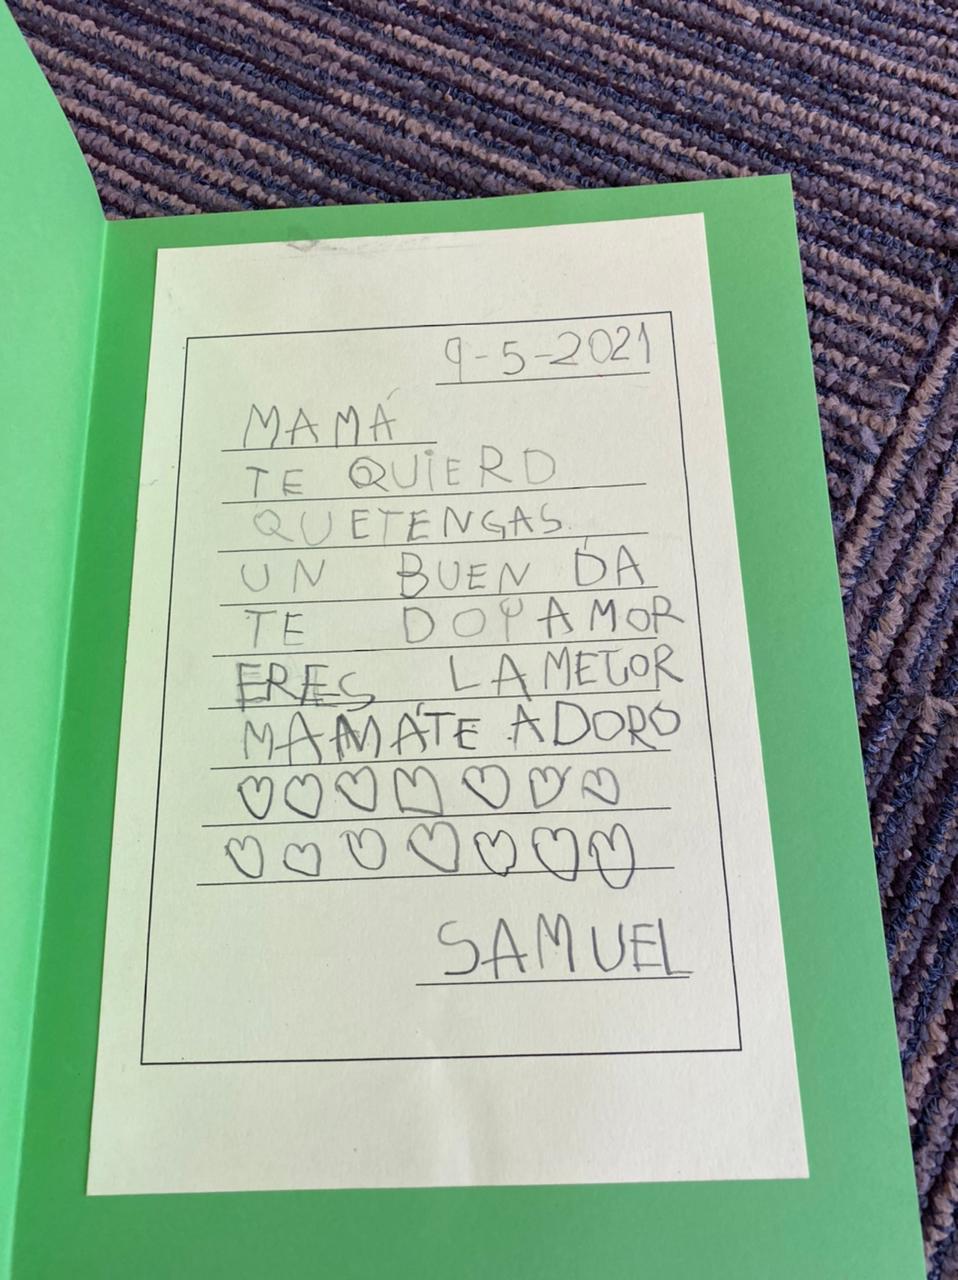 9-5-2021
MAMÁ
TE QUiERO
QUETENGAS
UN BUEN DÍA
TE DOY AMOR
ERES LA MEJOR
MAMÁ TE ADORO
SAMUEL